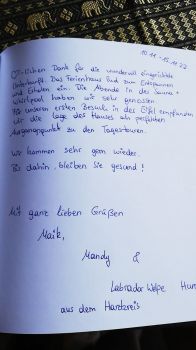 10.11 - 15.11.22
♡-lichen Dank für die wundervoll eingerichtete
Unterkunft. Das Ferienhaus lud zum Entspannen
und Erholen ein. Die Abende in der Sauna +
Whirlpool haben wir sehr genossen.
Für unseren ersten Besuch in der Eifel empfanden
wir die Lage des Hauses als perfekten
Ausgangspunkt zu den Tagestouren.
Wir kommen sehr gern wieder.
Bis dahin, bleiben Sie gesund!
Mit ganz lieben Grüßen
Maik,
Mandy &
Labrador Welpe
aus dem Harzkreis